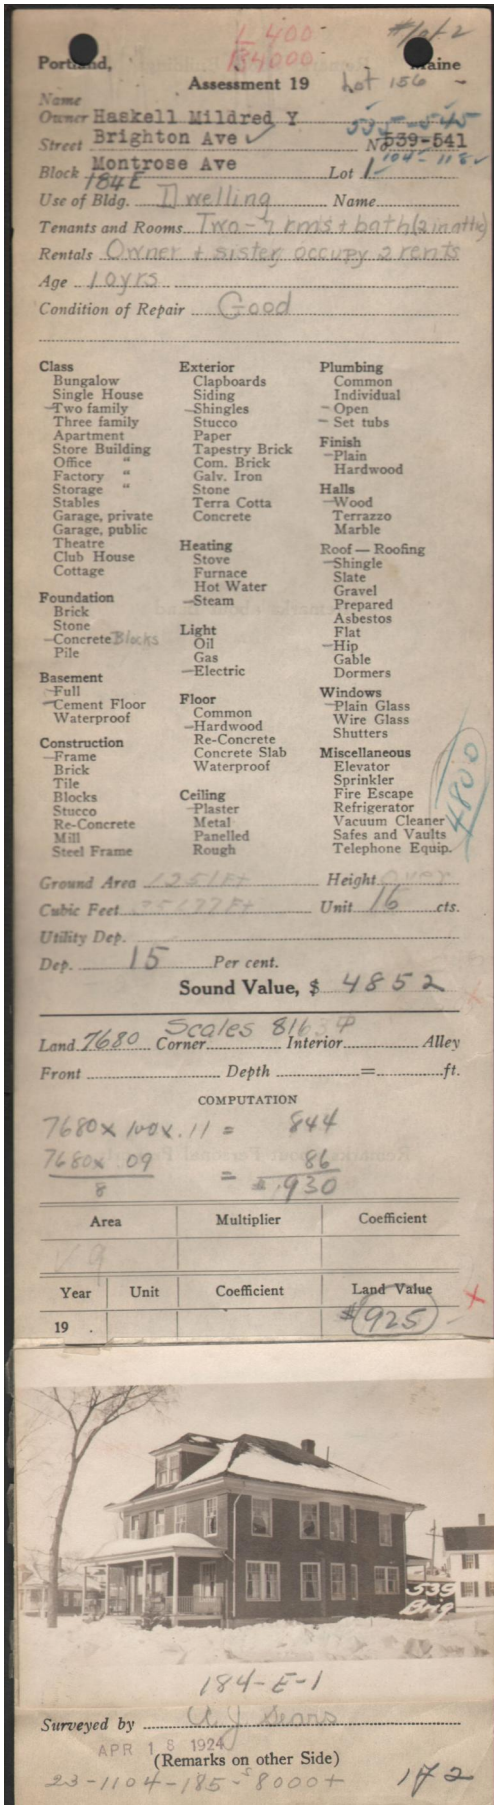 L 400
B4000
# 1 of 2
Portland, Maine
Assessment 19
Lot 156
Name
Owner Haskell Mildred Y
535-545
Street Brighton Ave No 539-541
104-118
Block Montrose Ave Lot 1
184 E
Use of Bldg. Dwelling Name
Tenants and Rooms Two-7 rms + bath (2 in attic)
Rentals Owner + sister occupy 2 rents
Age 10yrs
Condition of Repair Good
Class
Bungalow
Single House
Two family
Three family
Apartment
Store Building
Office "
Factory "
Storage "
Stables
Garage, private
Garage, public
Theatre
Club House
Cottage
Foundation
Brick
Stone
Concrete Blocks
Pile
Basement
Full
Cement Floor
Waterproof
Construction
Frame
Brick
Tile
Blocks
Stucco
Re-Concrete
Mill
Steel Frame
Exterior
Clapboards
Siding
Shingles
Stucco
Paper
Tapestry Brick
Com. Brick
Galv. Iron
Stone
Terra Cotta
Concrete
Heating
Stove
Furnace
Hot Water
Steam
Light
Oil
Gas
Electric
Floor
Common
Hardwood
Re-Concrete
Concrete Slab
Waterproof
Ceiling
Plaster
Metal
Panelled
Rough
Plumbing
Common
Individual
Open
Set tubs
Finish
Plain
Hardwood
Halls
Wood
Terrazzo
Marble
Roof — Roofing
Shingle
Slate
Gravel
Prepared
Asbestos
Flat
Hip
Gable
Dormers
Windows
Plain Glass
Wire Glass
Shutters
Miscellaneous
Elevator
Sprinkler
Fire Escape
Refrigerator
Vacuum Cleaner
Safes and Vaults
Telephone Equip.
4800
Ground Area 1251 Ft Height Over
Cubic Feet Unit 16 cts.
Utility Dep.
Dep. 15 Per cent.
Sound Value, $ 4852
Scales 8163
Land 7680 Corner Interior Alley
Front Depth = ft.
COMPUTATION
7680 x 100 x .11 = 844
7680 x 09 = 86
8
$ 930
Area Multiplier Coefficient
Year Unit Coefficient Land Value
19 . $ 925
539
Brig
184-E-1
Surveyed by
APR 18 1924
(Remarks on other Side)
23-1104-185-$8000+
172